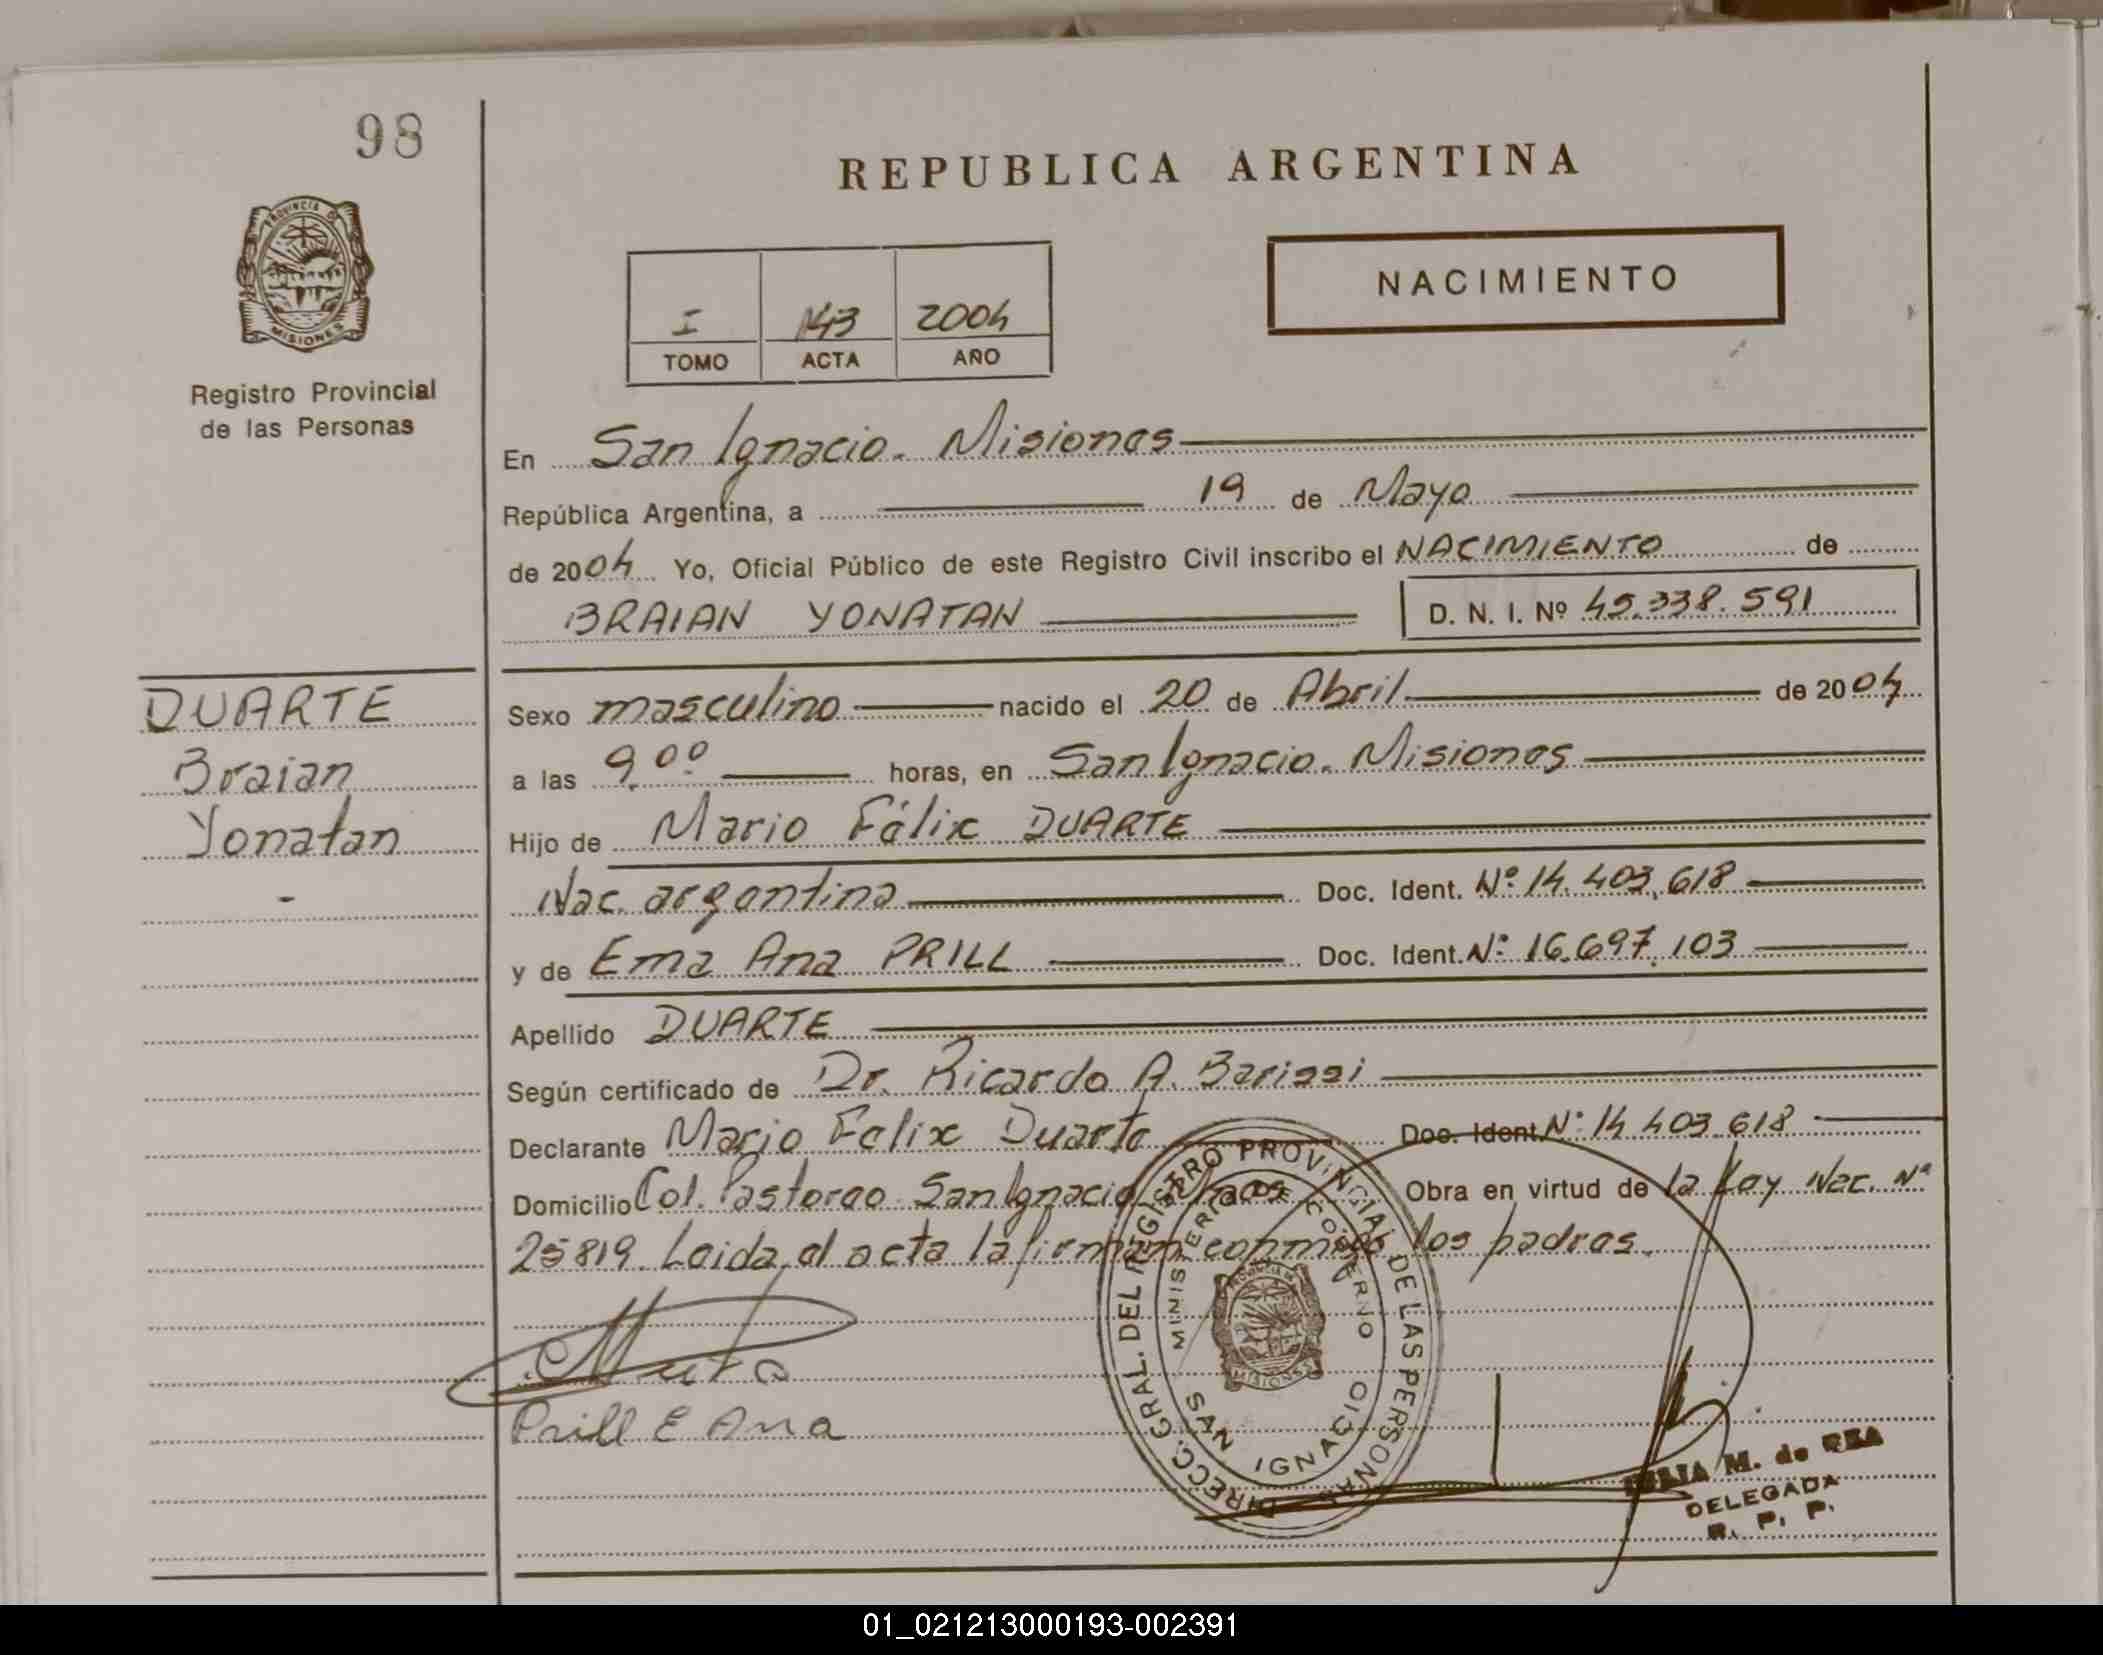 98
REPUBLICA ARGENTINA
PROVINCIA DE
MISIONES
NACIMIENTO
I 143 2004
TOMO ACTA AÑO
Registro Provincial
de las Personas
En San Ignacio. Misiones
República Argentina, a 19 de Mayo
de 2004 Yo, Oficial Público de este Registro Civil inscribo el NACIMIENTO de
BRAIAN YONATAN D. N. I. Nº 45.338.591
DUARTE
Braian
Yonatan
-
Sexo masculino nacido el 20 de Abril de 2004
a las 9.00 horas, en San Ignacio. Misiones
Hijo de Mario Félix DUARTE
Nac. argentina Doc. Ident. Nº 14.403.618
y de Ema Ana PRILL Doc. Ident. Nº 16.697.103
Apellido DUARTE
Según certificado de Dr. Ricardo A. Barissi
Declarante Mario Felix Duarte Doc. Ident. Nº 14.403.618
Domicilio Col. Pastoreo San Ignacio Obra en virtud de la Ley Nac. Nº
25819. Leida el acta la firman conmigo los padres.
Prill E Ana
DIRECC. GRAL. DEL REGISTRO PROVINCIAL DE LAS PERSONAS
MINISTERIO DE GOBIERNO
MISIONES
SAN IGNACIO
M. de REA
DELEGADA
R. P. P.
01_021213000193-002391